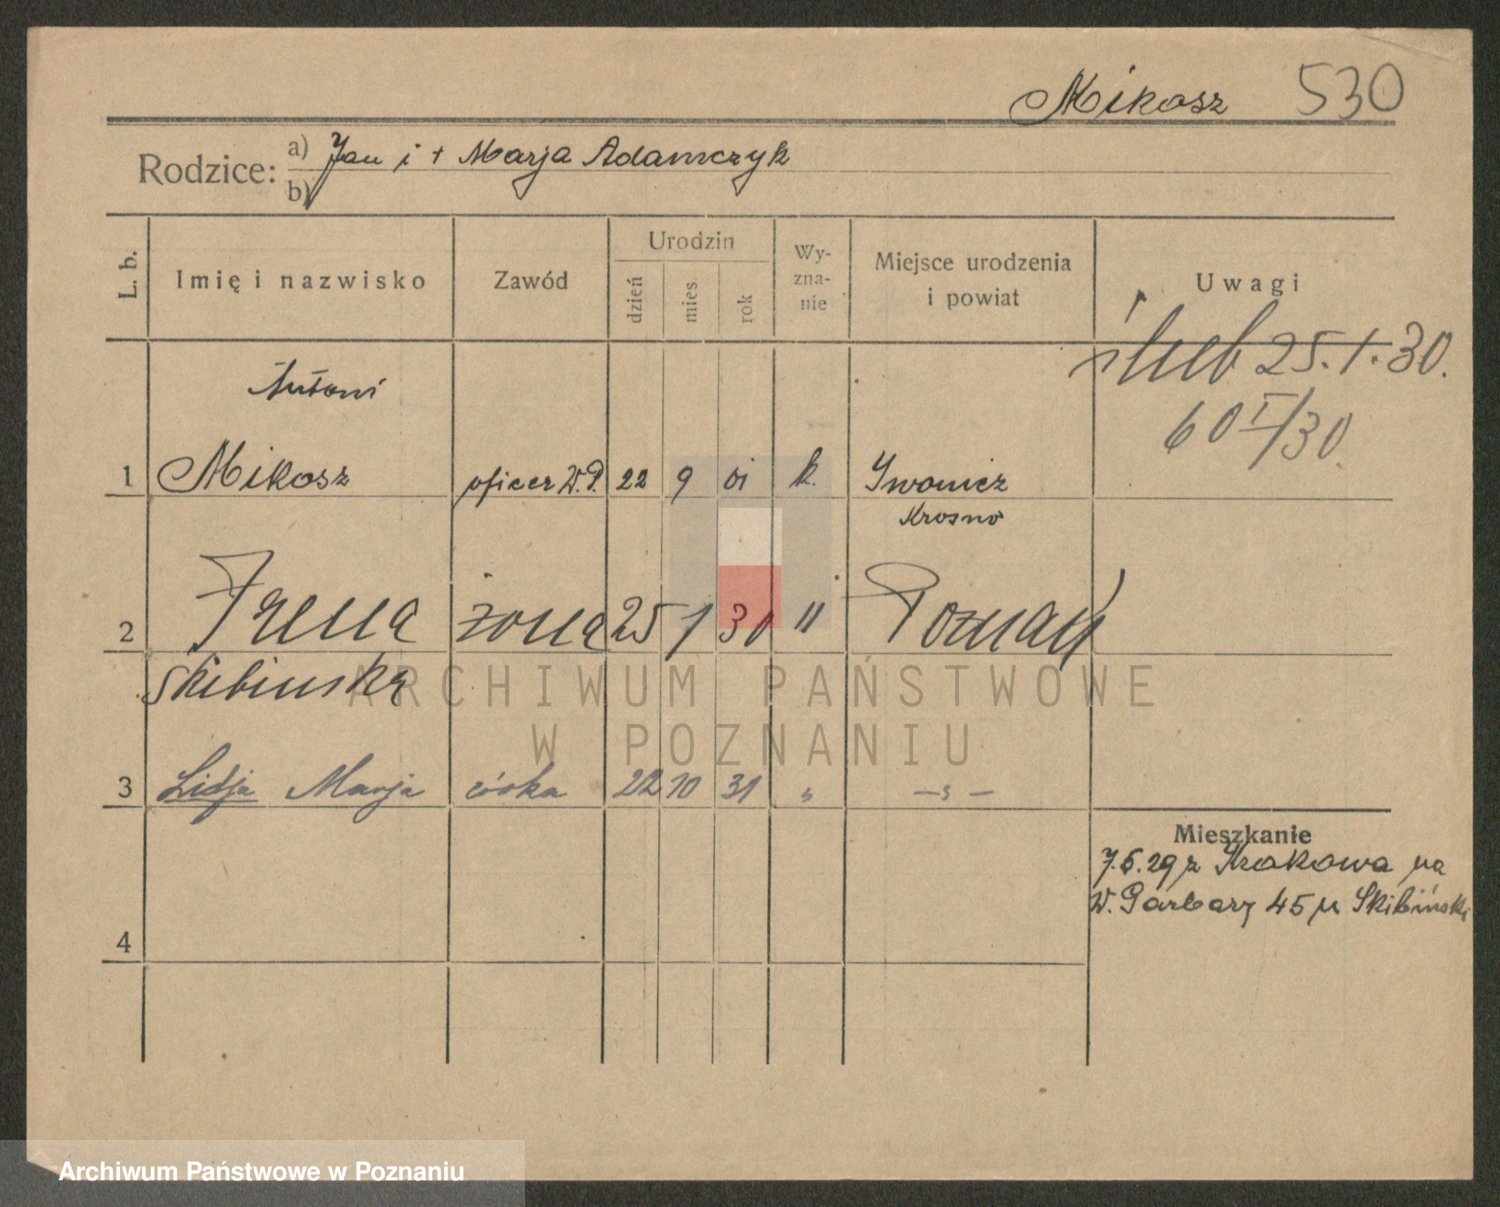 Mikosz 530
Rodzice: a) Jan i + Marja Adamczyk
b)
L. b. Imię i nazwisko Zawód Urodzin dzień mies. rok Wy-zna-nie Miejsce urodzenia i powiat Uwagi
ślub 25.1.30.
60 I/30
Antoni
1 Mikosz oficer W.P. 22 9 01 k. Iwonicz
Krosno
2 Irena żona 25 1 30 " Poznań
Skibinska
3 Lidja Marja córka 22 10 31 " — " —
Mieszkanie
7.5.29 z Krakowa na
W. Garbary 45 u Skibiński
4
ARCHIWUM PAŃSTWOWE
W POZNANIU
Archiwum Państwowe w Poznaniu